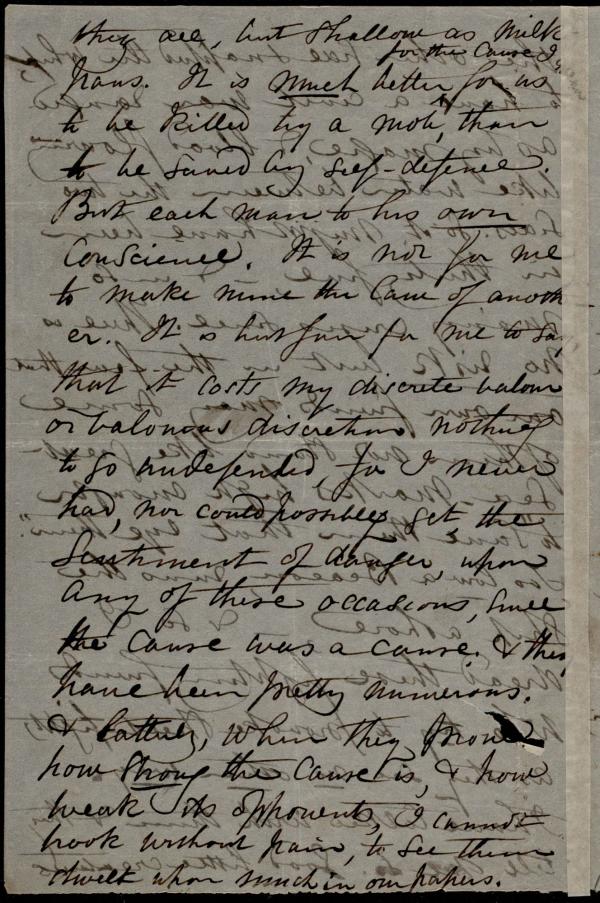 they are, but shallow as milk
for the Cause I
pans. It is much better for us
to be killed by a mob, than
to be saved by self-defence.
But each man to his own
Conscience. It is not for me
to make mine the Cause of anoth
er. It is but fair for me to say
that it costs my discrete valour
or valourous discretion nothing
to go undefended, for I never
had, nor could possibly get the
Sentiment of danger, upon
any of these occasions, since
the cause was a cause. & they
have been pretty numerous.
& latterly, when they prove
how Strong the Cause is, & how
weak its opponents, I cannot
look without pain, to see them
dwelt upon much in our papers.